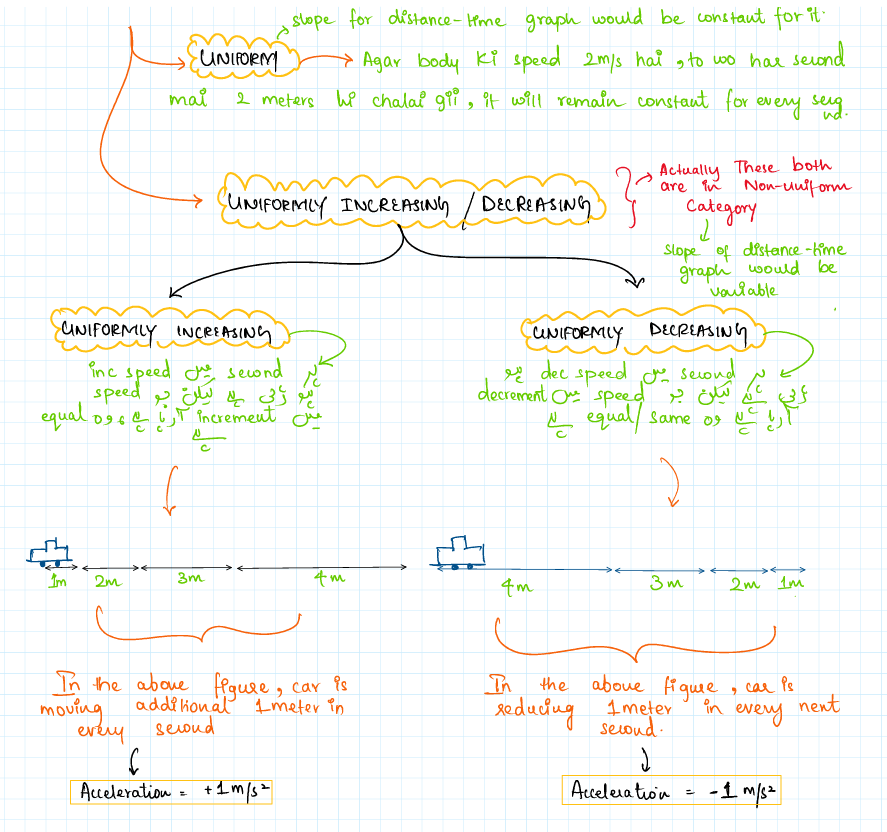 slope for distance-time graph would be constant for it.
UNIFORM
Agar body ki speed 2m/s hai, to wo har second
mai 2 meters hi chalai gii, it will remain constant for every second.
UNIFORMLY INCREASING / DECREASING
Actually These both
are in Non-uniform
Category
slope of distance-time
graph would be
variable
UNIFORMLY INCREASING
ہر second میں speed inc
speed
increment میں equal
UNIFORMLY DECREASING
ہر second میں speed dec
speed میں decrement
equal/same
1m 2m 3m 4m
4m 3m 2m 1m
In the above figure, car is
moving additional 1meter in
every second
Acceleration = +1m/s²
In the above figure, car is
reducing 1meter in every next
second.
Acceleration = -1 m/s²